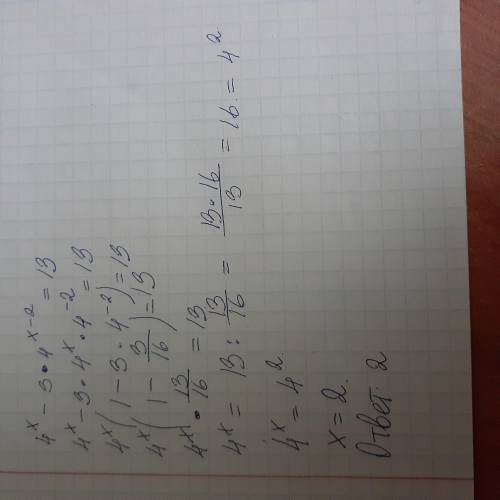 4ˣ − 3 • 4ˣ⁻² = 13
4ˣ − 3 • 4ˣ • 4⁻² = 13
4ˣ(1 − 3 • 4⁻²) = 13
4ˣ(1 − 3/16) = 13
4ˣ • 13/16 = 13
4ˣ = 13 : 13/16 = 13 • 16/13 = 16 = 4²
4ˣ = 4²
x = 2.
Ответ: 2